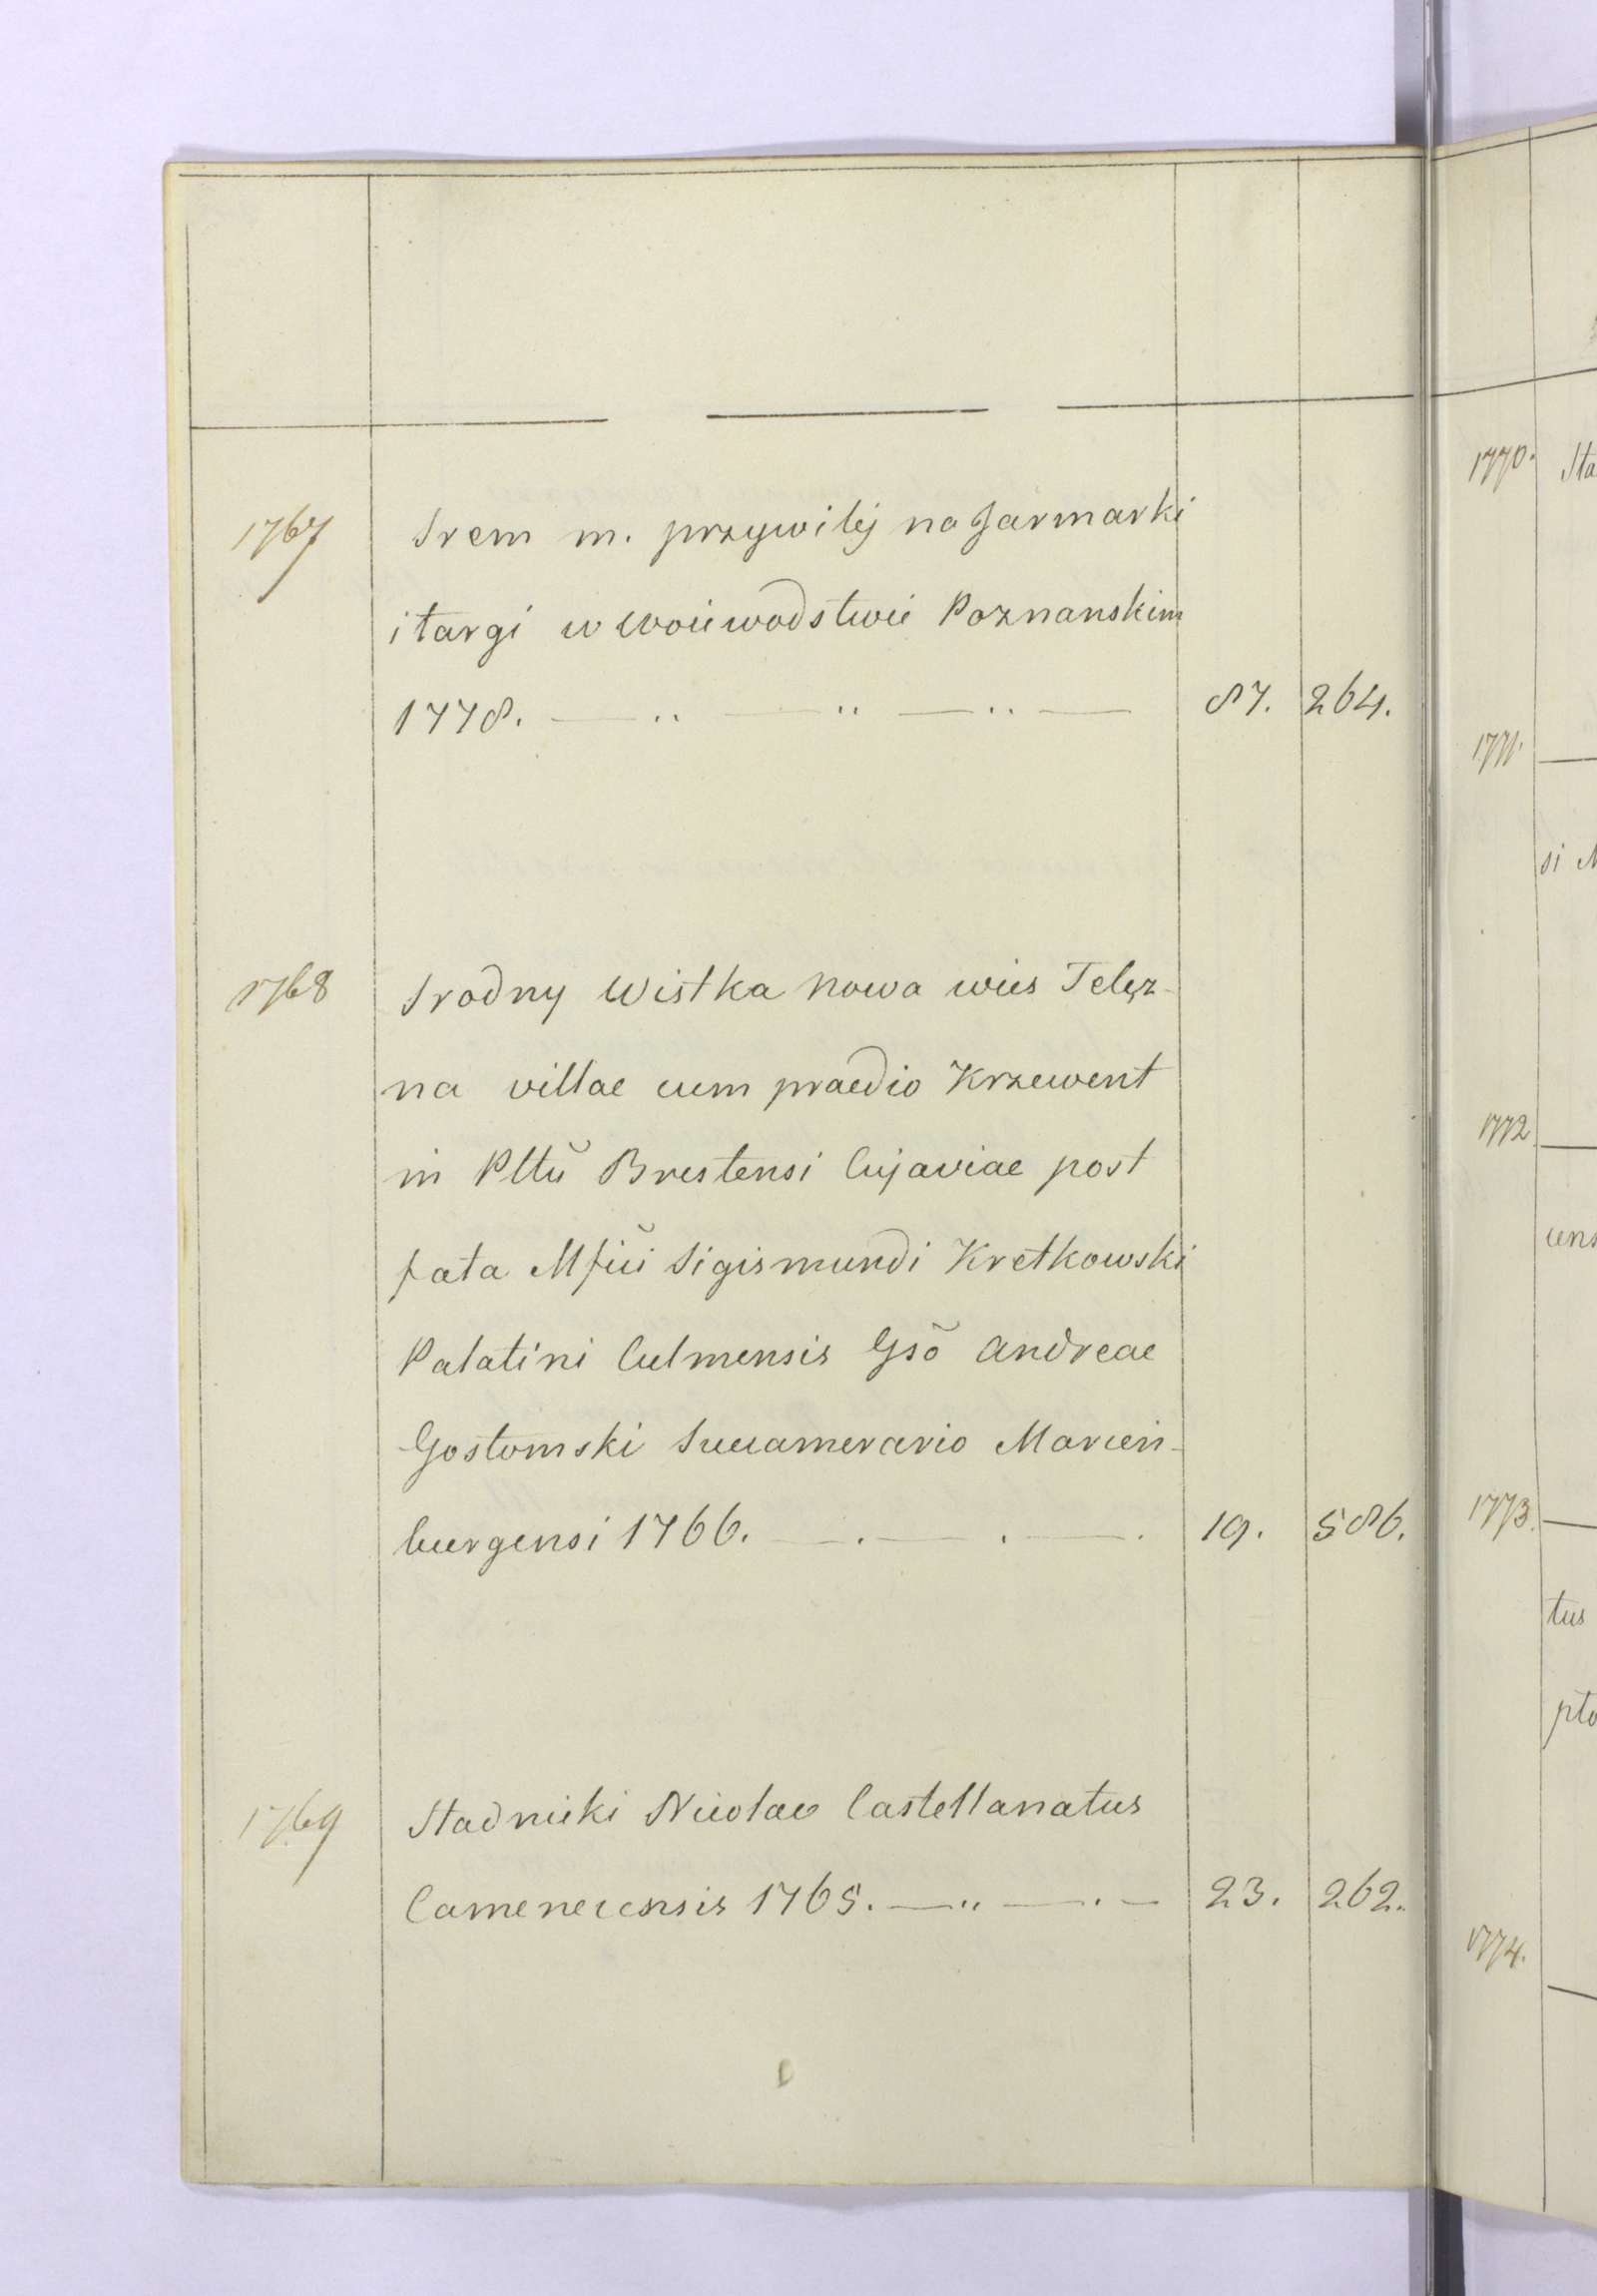 1767 Srem m. przywilej na Jarmarki
i targi w woiewodstwie Poznanskim
1778. — .. — .. — .. — 87. 264.
1768 Srodny Wistka Nowa wies Telęz-
na villae cum praedio Krzewent
in Pllŭ Brestensi Cujaviae post
fata Mfici Sigismundi Kretkowski
Palatini Culmensis Gsŏ Andreae
Gostomski Succamerario Marien-
burgensi 1766. — . — . — . 19. 586.
1769 Stadnicki Nicolao Castellanatus
Camenecensis 1765. — .. — . — 23. 262.
1770. Sta
1771. —
si M
1772 —
cens
1773. —
tus
pto
1774. —